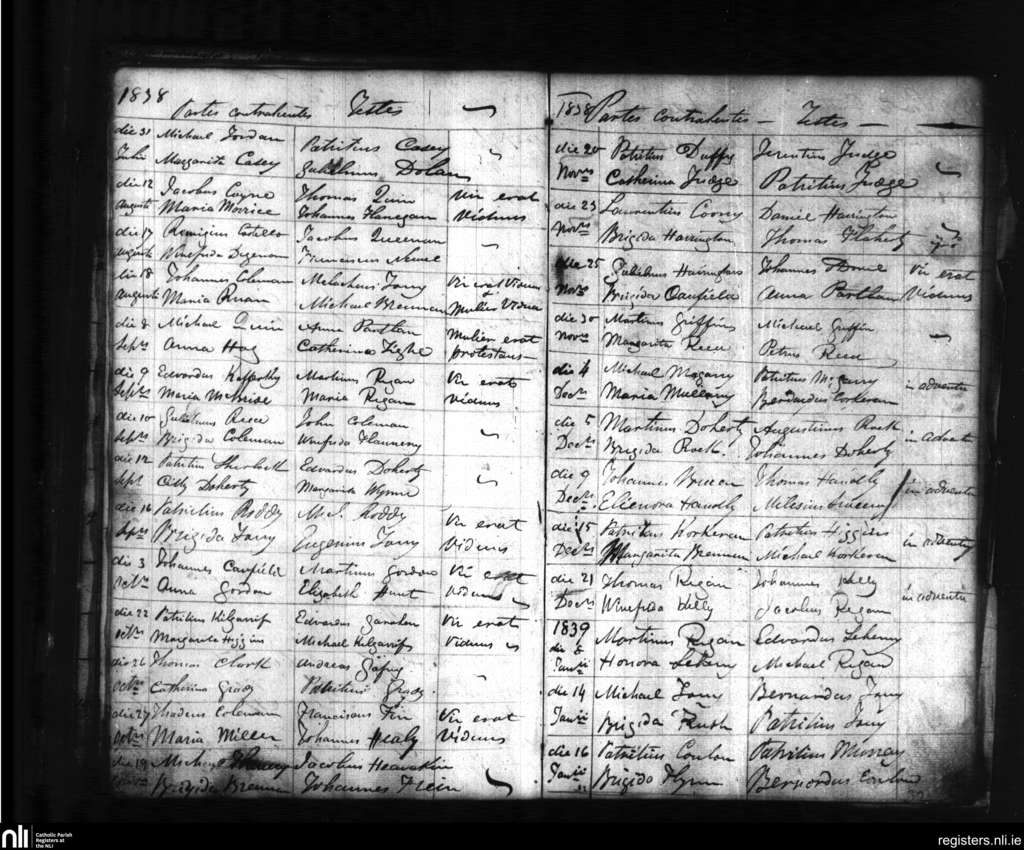 1838
Partes contrahentes Testes
die 31 Michael Jordan Patritius Casey
Julii Margarita Casey Gulielmus Dolan
die 12 Jacobus Coyne Thomas Quin Vir erat
Augusti Maria Morrice Johannes Flanegan Viduus
die 17 Remigius Costello Jacobus
Augusti Winefrida Franciscus
die 18 Johannes Coleman Melachius Vir erat Viduus
Augusti Maria Ruan Michael Brennan & Mulier Vidua
die 8 Michael Quin Anna Mulier erat
Septris Anna Hog Catherina Tighe protestans
die 9 Edvardus Martinus Regan Vir erat
Septris Maria McBride Maria Regan Viduus
die 10 Gulielmus Reece John Coleman
Septris Brigida Coleman Winefrida Flannery
die 12 Patritius Edvardus Doherty
Sept Citty Doherty Margarita Wynne
die 16 Patritius Roddy M. J. Roddy Vir erat
Septris Brigida Eugenius Viduus
die 3 Johannes Canfield Martinus Gordon Vir erat
Octris Anna Gordon Elizabeth Hunt Viduus
die 22 Patritius Kilgarrif Edvardus Vir erat
Octris Margarita Higgins Michael Kilgarrif Viduus
die 26 Thomas Clark Andreas
Octris Catherina Grady Patritius Grady
die 27 Thadeus Coleman Franciscus Vir erat
Octris Maria Miller Johannes Healy Viduus
die 19 Michael Jacobus
Brigida Brennan Johannes Frein
1838 Partes contrahentes – Testes –
die 20 Patritius Duffy Terentius Judge
Novris Catherina Judge Patritius Judge
die 23 Laurentius Coony Daniel Harrington
Novris Brigida Harrington Thomas Flaherty
die 25 Gulielmus Harrington Johannes Vir erat
Novris Brigida Canfield Anna Viduus
die 30 Martinus Griffin Michael Griffin
Novris Margarita Reece Petrus Reece
die 4 Michael Mcgarry Patritius McGarry in adventu
Decris Maria Mullany Bernardus Corkeran
die 5 Martinus Doherty Augustinus Rock in advent
Decris Brigida Rock. Johannes Doherty
die 9 Johannes Thomas Handly in adventu
Decris Elienora Handly Milesius
die 15 Patritius Korkeran Patritius Higgins in adventu
Decris Margarita Brennan Michael Korkeran
die 21 Thomas Regan Johannes Kelly in adventu
Decris Winefrida Kelly Jacobus Regan
1839 Martinus Regan Edvardus Leheny
die 8
Janrii Honora Leheny Michael Regan
die 14 Michael Bernardus
Janrii Brigida Rush Patritius
die 16 Patritius Conlon Patritius Murray
Janrii Brigida Flynn Bernardus Conlon
nli
Catholic Parish
Registers at
the NLI
registers.nli.ie